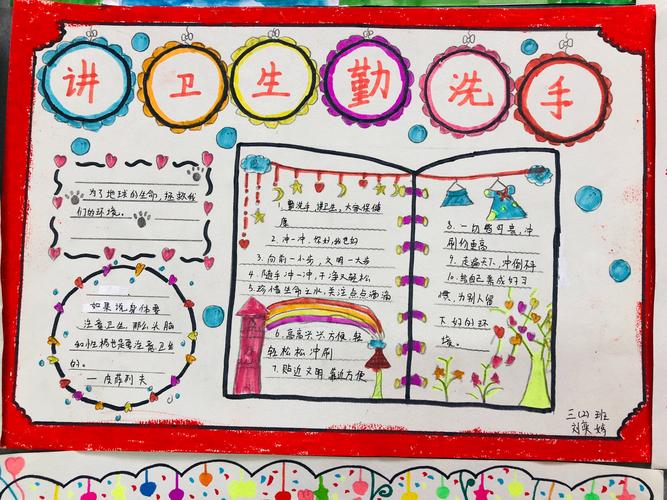 讲卫生勤洗手
为了地球的生命，拯救我
们的环境。
如果说身体要
注意卫生，那么头脑
和性格也是要注意卫生
的。
皮萨列夫
勤洗手，讲卫生，大家保健
康
2.冲一冲，你好，我也好
3.向前一小步，文明一大步
4.随手冲一冲，干净又轻松
5.珍惜生命之水，关注点点滴滴
6.高高兴兴方便，轻
轻松松冲刷
7.贴近文明 靠近方便
8.一切皆可贵，冲
刷价更高
9.走遍天下，冲倒不
10.给自己养成好习
惯，为别人留
下好的环
境。
三(2)班